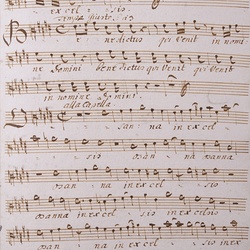 ex cel - sis.
Tempo giusto
Be - ne dictus qui Venit in nomi
ne Domini Benedictus qui Venit qui Venit
in nomine Domini.
alla Capella
O - san - na in ex cel
sis o san - na osanna
o san - na in ex cel - sis
osanna in ex cel sis in excelsis
o san - na in ex cel - sis in ex